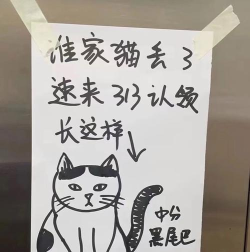 谁家貓丢了
速来313认领
长这样
中分
黑尾巴